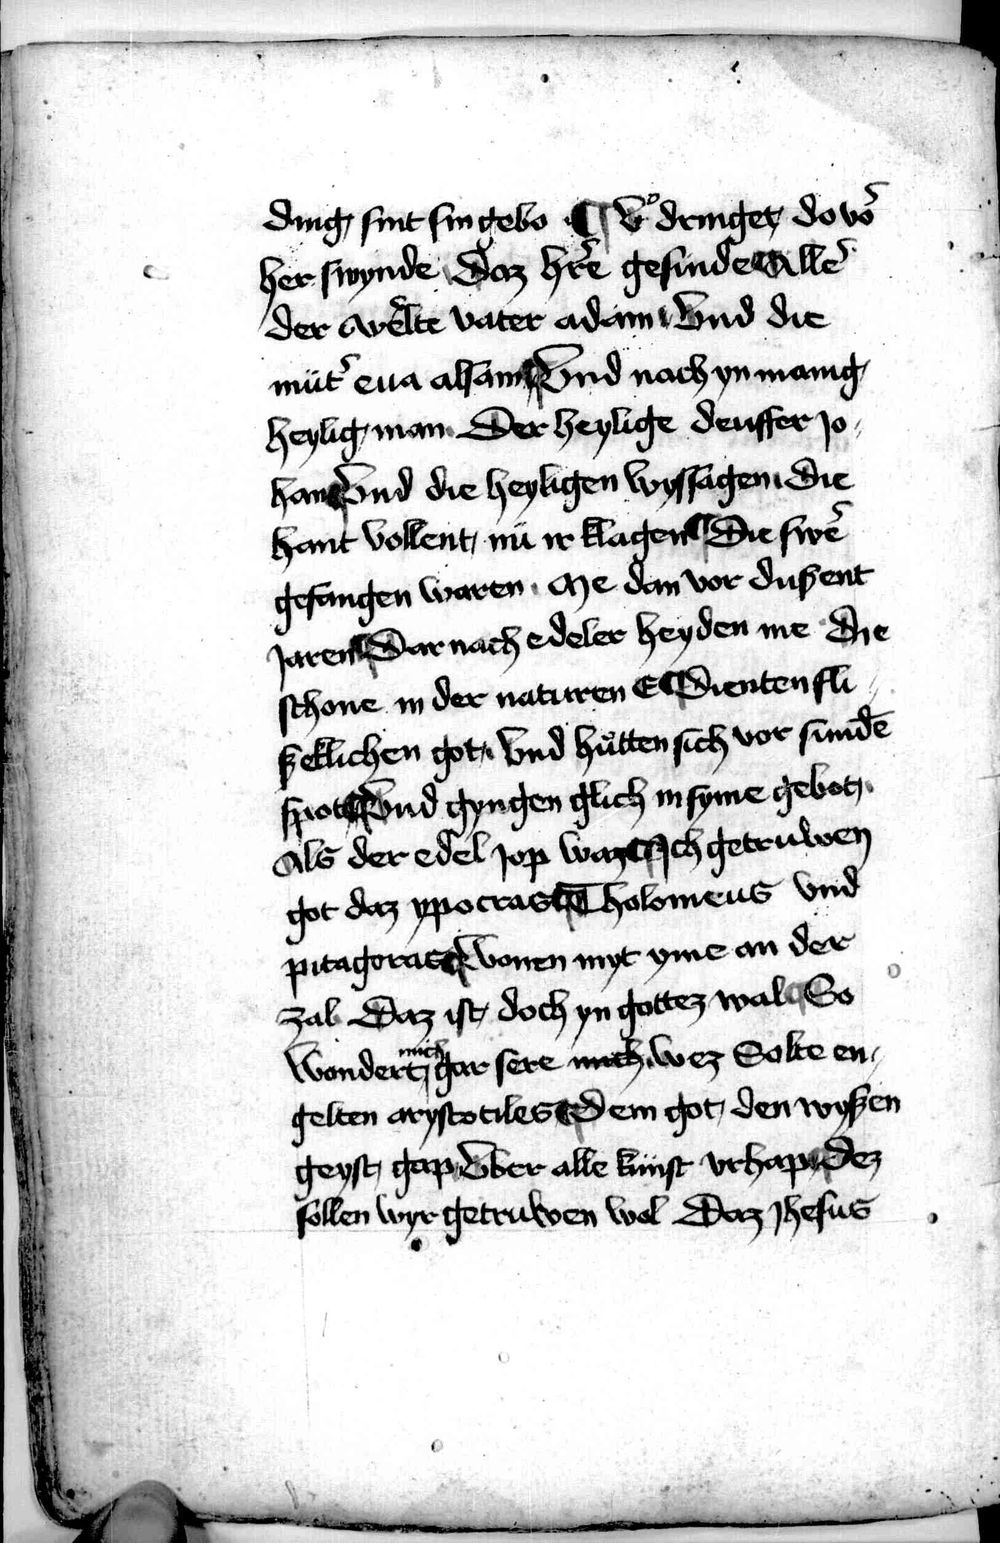 ding sint sin gebo ¶ vͦ dringet do võ
her swynde Daz hr̃e gesinde Alle᷑
der werlte vater adam Vnd die
müt᷑ eua alsam Vnd noch yn manig
heylig man Der heylige deuffer Jo-
han Vnd die heyligen wyssagen Die
hant vollent nü ir klagen Die swe᷑
gefangen waren Me dan vor dußent
Jaren Dar nach edeler heyden me Die
schone in der naturen E Dienten fli-
ßeklichen got Vnd hůtten sich vor sundē
spot Vnd gyngen glich in syme gebot
Als der edel Jop waz Ich getruwen
got daz ypocras Tholomeus vnd
pitagoras Wonen myt yme an der
zal Daz ist doch yn gottez wal So
Wondert mich gar sere mich wez Solte en-
gelten arystotiles Dem got den wyßen
geyst gap Vber alle künst vrhap Dez
sollen wyr getruwen wol Daz Jhesus